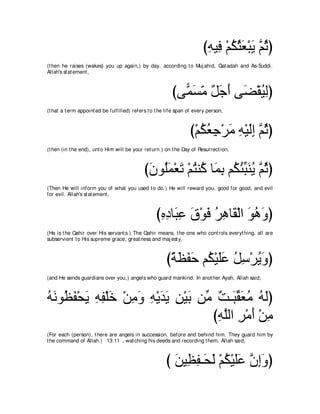 (ثُمَّ يَبْعَثُكُمْ فِيهِ)
(then he raises (wakes) you up again,) by day, according to Mujahid, Qatadah and As-Suddi.
Allah's statement,
(لِيُقْضَى أَجَلٌ مُّسَمًّى)
(that a term appointed be fulfilled) refers to the life span of every person,
(ثُمَّ إِلَيْهِ مَرْجِعُكُمْ)
(then (in the end), unto Him will be your return.) on the Day of Resurrection,
(ثُمَّ يُنَبِّئُكُم بِمَا كُنتُمْ تَعْمَلُونَ)
(Then He will inform you of what you used to do.) He will reward you, good for good, and evil
for evil. Allah's statement,
(وَهُوَ الْقَاهِرُ فَوْقَ عِبَادِهِ)
(He is the Qahir over His servants.) The Qahir means, the one who controls everything, all are
subservient to His supreme grace, greatness and majesty,
(وَيُرْسِلُ عَلَيْكُم حَفَظَةً)
(and He sends guardians over you,) angels who guard mankind. In another Ayah, Allah said;
(لَهُ مُعَقِّبَـتٌ مِّن بَيْنِ يَدَيْهِ وَمِنْ خَلْفِهِ يَحْفَظُونَهُ
مِنْ أَمْرِ اللَّهِ)
(For each (person), there are angels in succession, before and behind him. They guard him by
the command of Allah.) 13:11 , watching his deeds and recording them. Allah said,
(وَإِنَّ عَلَيْكُمْ لَحَـفِظِينَ )